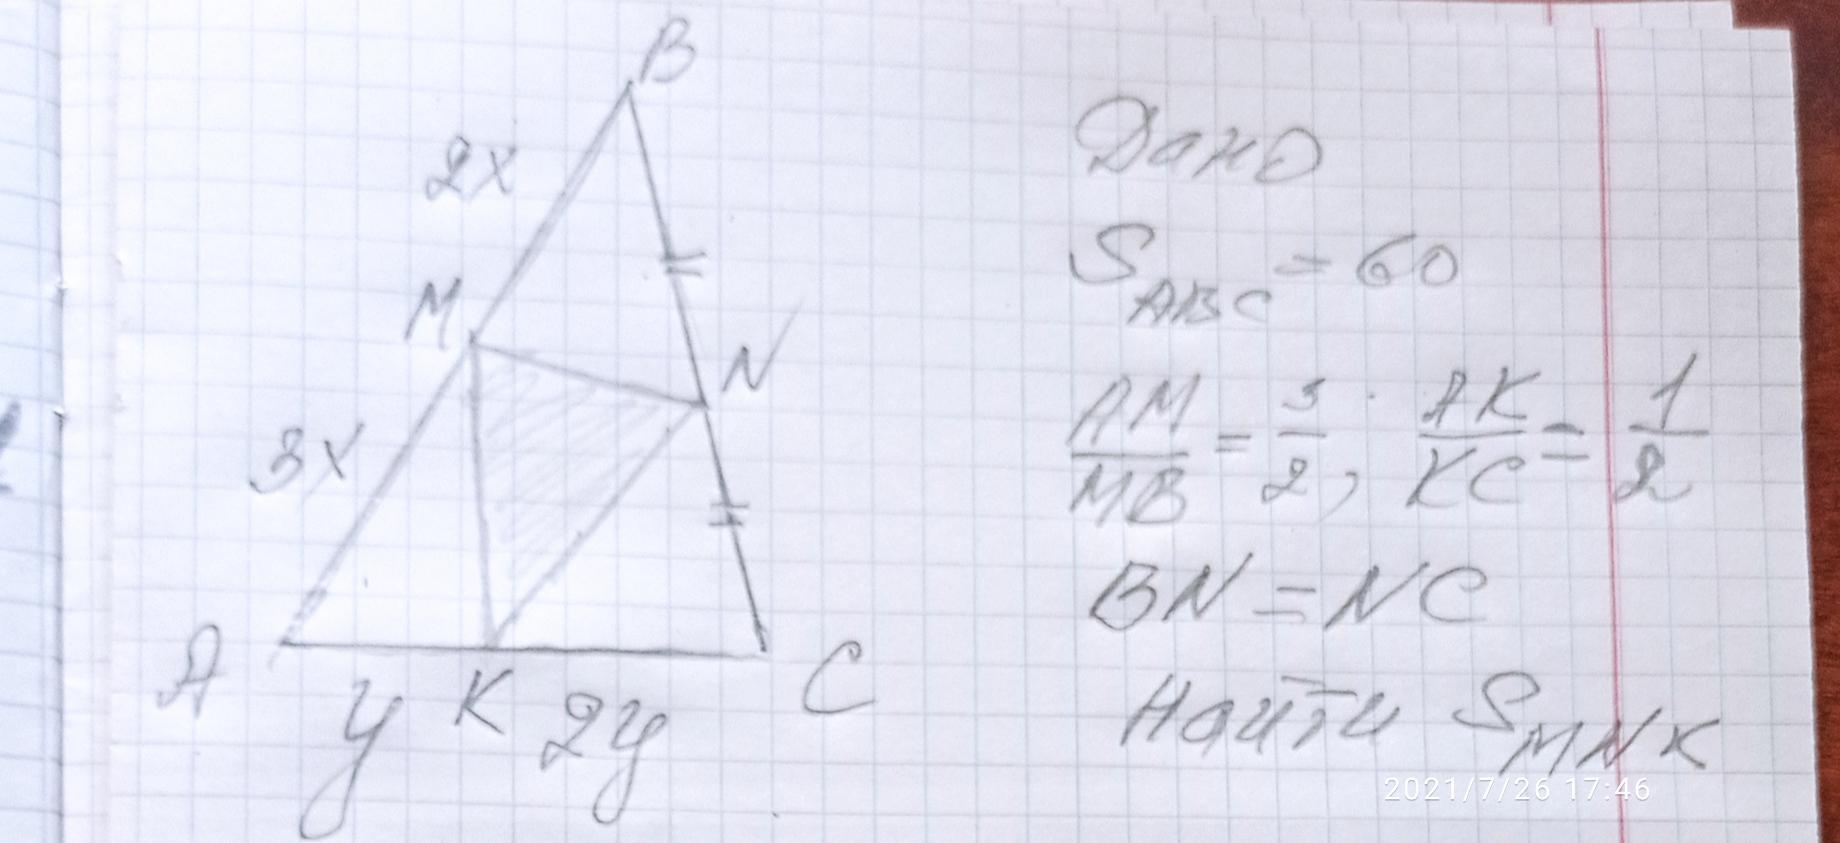 B
2x
M
N
3x
A
y K 2y
C
Дано
S_ABC = 60
AM/MB = 3/2, AK/KC = 1/2
BN = NC
Найти S_MNK
2021/7/26 17:46